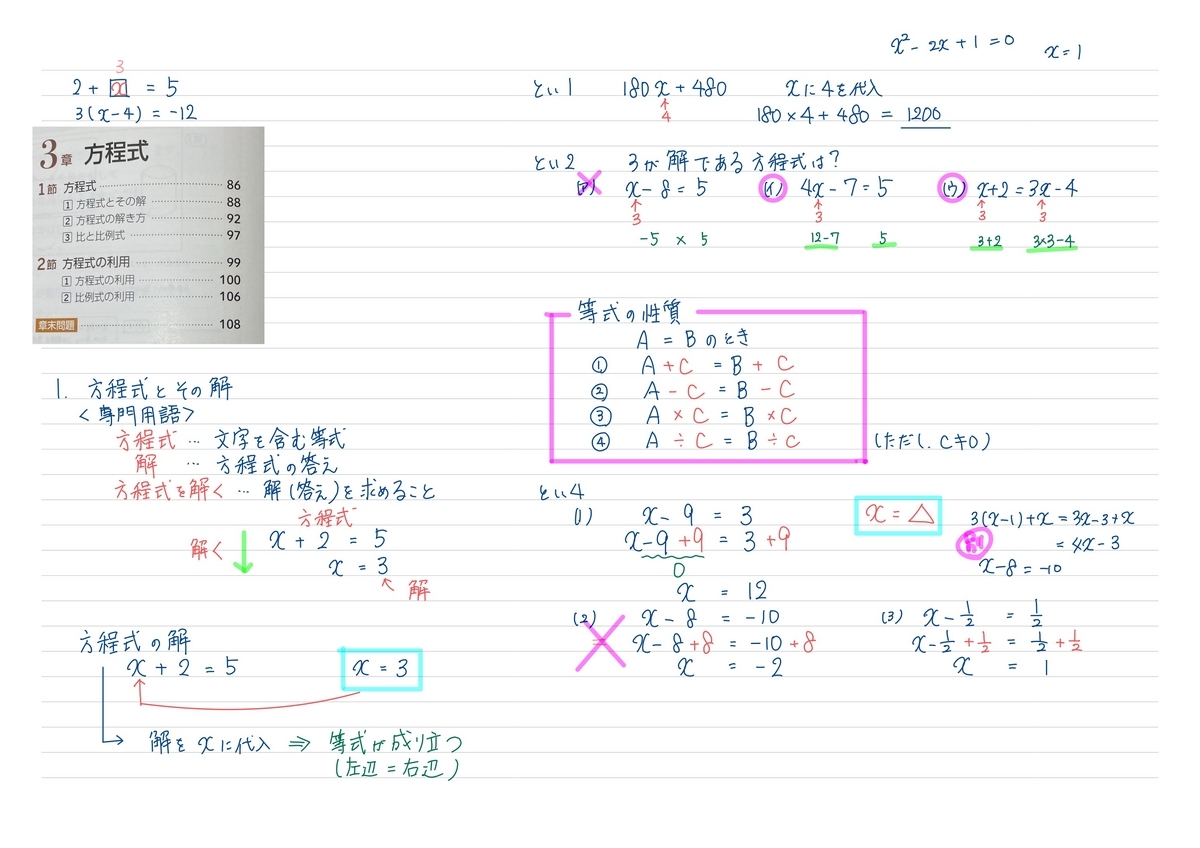 3
2 + x = 5
3(x-4) = -12
3章 方程式
1節 方程式 86
1 方程式とその解 88
2 方程式の解き方 92
3 比と比例式 97
2節 方程式の利用 99
1 方程式の利用 100
2 比例式の利用 106
章末問題 108
1. 方程式とその解
<専門用語>
方程式 … 文字を含む等式
解 … 方程式の答え
方程式を解く … 解(答え)を求めること
方程式
解く x + 2 = 5
x = 3
解
方程式の解
x + 2 = 5 x = 3
解をxに代入 ⇒ 等式が成り立つ
(左辺 = 右辺)
x² - 2x + 1 = 0 x = 1
とい1 180x + 480 xに4を代入
4 180×4+480 = 1200
とい2 3が解である方程式は?
(ア) x-8=5 (イ) 4x-7=5 (ウ) x+2=3x-4
3 3 3 3
-5 × 5 12-7 5 3+2 3×3-4
等式の性質
A = B のとき
① A + C = B + C
② A - C = B - C
③ A × C = B × C
④ A ÷ C = B ÷ C (ただし、C≠0)
とい4
(1) x - 9 = 3 x = △ 3(x-1)+x = 3x-3+x
x-9+9 = 3+9 = 4x-3
0 x-8=-10
x = 12
(2) x - 8 = -10 (3) x - 1/2 = 1/2
= x-8+8 = -10+8 x-1/2+1/2 = 1/2+1/2
x = -2 x = 1